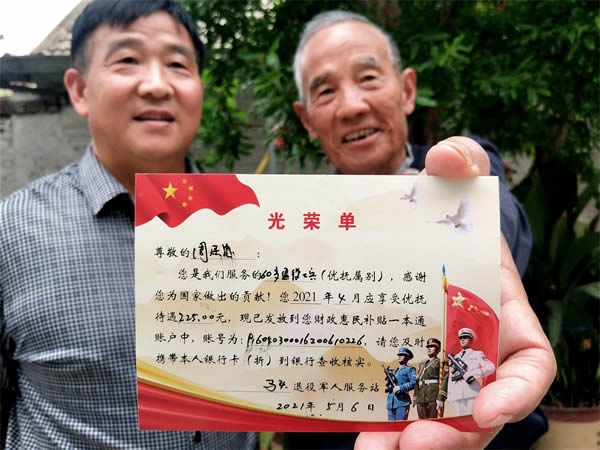 光荣单
尊敬的周:
您是我们服务的60岁退役士兵(优抚属别),感谢
您为国家做出的贡献!您2021年4月应享受优抚
待遇225.00元,现已发放到您财政惠民补贴一本通
账户中,账号为:A6030300016200610226,请您及时
携带本人银行卡(折)到银行查收核实。
马头退役军人服务站
2021年5月6日